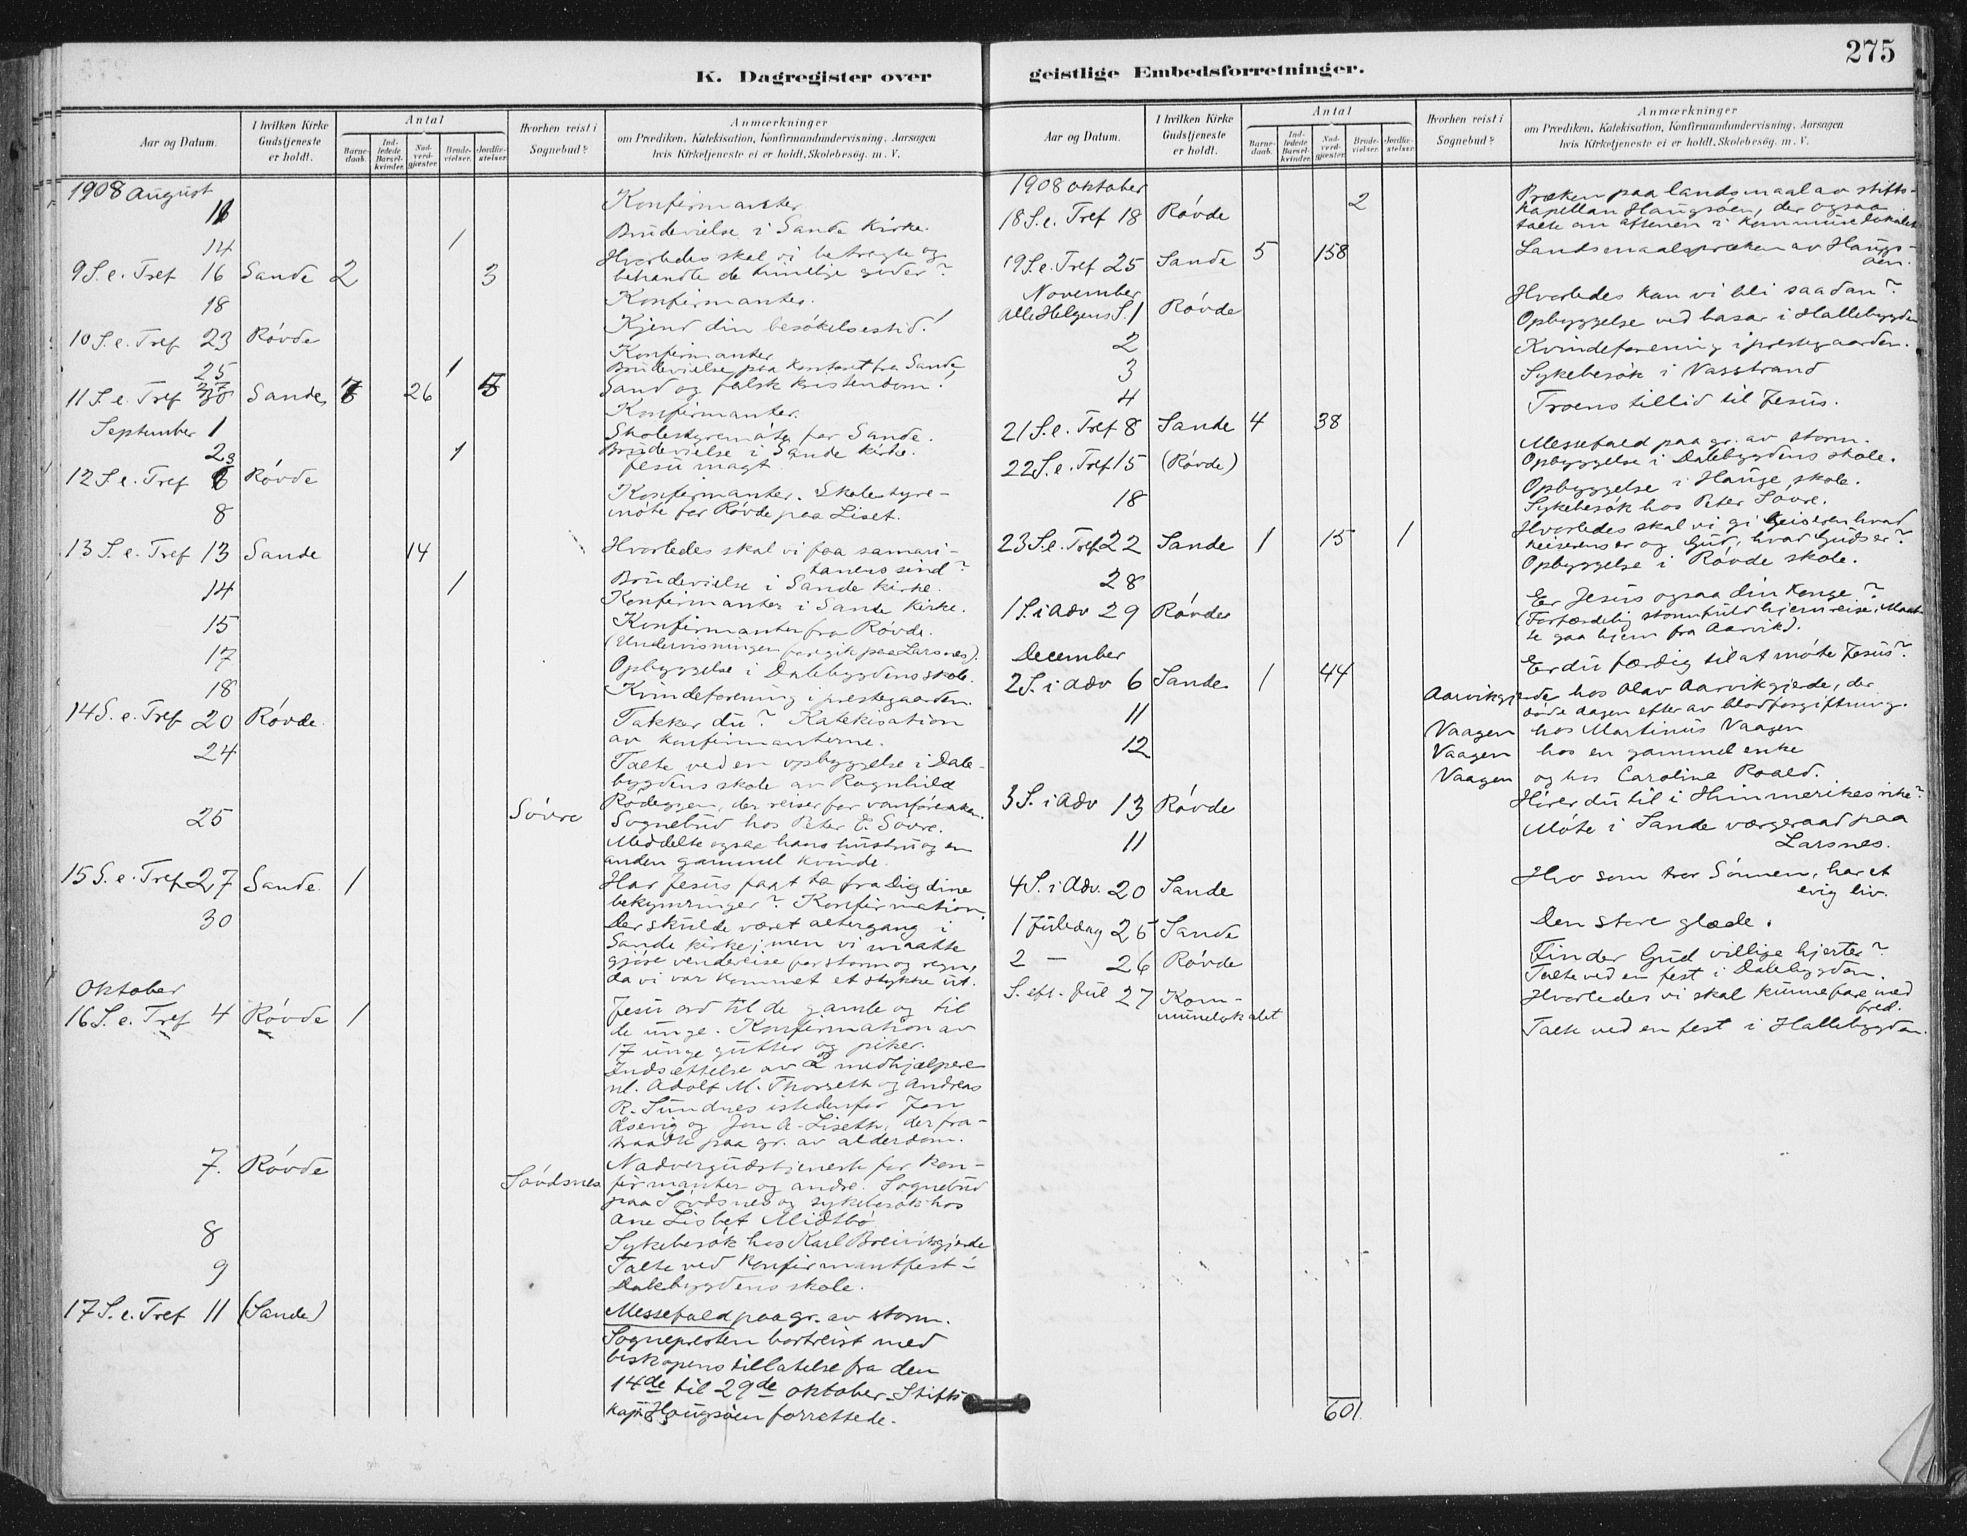 275
K. Dagregister over
geistlige Embedsforretninger.
Aar og Datum.
I hvilken Kirke Gudstjeneste er holdt.
Antal
Barnedaab.
Indledede Barselkvinder.
Nadverdgjester.
Brudevielser.
Jordfæstelser.
Hvorhen reist i Sognebud?
Anmærkninger
om Prædiken, Katekisation, Konfirmandundervisning, Aarsagen
hvis Kirketjeneste ei er holdt, Skolebesøg. m. V.
1908 August
11 Konfirmanter
14 1 Brudevielse i Sande Kirke.
9 S. e. Tref 16 Sande 2 3 Hvorledes skal vi betragte og
behandle de timelige goder?
18 Konfirmanter.
10 S. e. Tref 23 Røvde Kjend din besøkelsestid!
25 Konfirmanter
27 1 Brudevielse paa kontoret fra Sande
11 S. e. Tref 30 Sande 26 5 Sand og falsk kristendom.
September 1 Konfirmanter.
2 Skolestyremøte for Sande.
3 1 Brudevielse i Sande kirke.
12 S. e. Tref 6 Røvde Jesu magt.
8 Konfirmanter. Skolestyre-
møte for Røvde paa Liset.
13 S. e. Tref 13 Sande 14 Hvorledes skal vi faa samari-
tanens sind?
14 1 Brudevielse i Sande kirke.
Konfirmanter i Sande kirke.
15 Konfirmanter fra Røvde.
(Undervisningen foregik paa Larsnes).
17 Opbyggelse i Dalebygdens skole.
18 Kvindeforening i prestegaarden.
14 S. e. Tref 20 Røvde. Takker du? Katekisation
av konfirmanterne.
24 Talte ved en opbyggelse i Dale-
bygdens skole av Ragnhild
Rødeggen, der reiser for vanføresaken.
25 Søvre Sognebud hos Peter E. Søvre.
Meddelte ogsaa hans hustru og en
anden gammel kvinde.
15 S. e. Tref 27 Sande. 1 Har Jesus faat ta fra Dig dine
bekymringer? Konfirmation.
30 Der skulde været altergang i
Sande kirke, men vi maatte
gjøre vendereise for storm og regn,
da vi var kommet et stykke ut.
Oktober
16 S. e. Tref 4 Røvde 1 Jesu ord til de gamle og til
de unge. Konfirmation av
17 unge gutter og piker.
Indsættelse av 2 medhjælpere
nl. Adolf M. Thorseth og Andreas
R. Sundnes istedenfor Jon
Åsevig og Jon A. Liseth, der fra-
traadte paa gr. av alderdom.
7. Røvde Nadvergudstjeneste for kon-
Søvdsnes firmanter og andre. Sognebud
paa Søvdsnes og sykebesøk hos
Ane Lisbet Midtbø.
8 Sykebesøk hos Karl Breivikgjerde
9 Talte ved konfirmantfest i
Dalebygdens skole.
17 S. e. Tref 11 (Sande) Messefald paa gr. av storm.
Sognepresten bortreist med
biskopens tillatelse fra den
14de til 29de oktober. Stifts-
kap. Haugsøen forrettede.
Aar og Datum.
I hvilken Kirke Gudstjeneste er holdt.
Antal
Barnedaab.
Indledede Barselkvinder.
Nadverdgjester.
Brudevielser.
Jordfæstelser.
Hvorhen reist i Sognebud?
Anmærkninger
om Prædiken, Katekisation, Konfirmandundervisning, Aarsagen
hvis Kirketjeneste ei er holdt, Skolebesøg. m. V.
1908 Oktober
18 S. e. Tref 18 Røvde 2 Præken paa landsmaal av stifts-
kapellan Haugsøen, der ogsaa
talte om aftenen i kommunelokalet
19 S. e. Tref 25 Sande 5 158 Landsmaalspræken av Haugs-
øen.
November
Alle Helgens S. 1 Røvde Hvorledes kan vi bli saadan?
2 Opbyggelse ved basar i Hallebygden
3 Kvindeforening i prestegaarden.
4 Sykebesøk i Vasstrand
21 S. e. Tref 8 Sande 4 38 Troens tillid til Jesus.
22 S. e. Tref 15 (Røvde) Messefald paa gr. av storm.
Opbyggelse i Dalebygdens skole.
18 Opbyggelse i Hauge skole.
Sykebesøk hos Peter Søvre.
23 S. e. Tref 22 Sande 1 15 1 Hvorledes skal vi gi keiseren hvad
keiserens er og Gud, hvad Guds er?
28 Opbyggelse i Røvde skole.
1 S. i Adv 29 Røvde Er Jesus ogsaa din konge?
(Forfærdelig stormfuld hjemreise, Maat-
te gaa hjem fra Aarvik).
December
2 S. i Adv 6 Sande 1 44 Er du færdig til at møte Jesus?
11 Aarvikgjerde hos Olav Aarvikgjerde, der
døde dagen efter av blodforgiftning.
12 Vaagen hos Martinus Vaagen
Vaagen hos en gammel enke
Vaagen og hos Caroline Roald.
3 S. i Adv 13 Røvde Hører du til i Himmerikes rike?
11 Møte i Sande værgeraad paa
Larsnes.
4 S. i Adv. 20 Sande Hvo som tror Sønnen, har et
evig liv.
1 Juledag 25 Sande Den store glæde.
2 — 26 Røvde Finder Gud villige hjerter?
Talte ved en fest i Dalebygden.
S. eft. Jul 27 Kom-
munelokalet Hvorledes vi skal kunne fare med
fred.
Talte ved en fest i Hallebygden.
601.